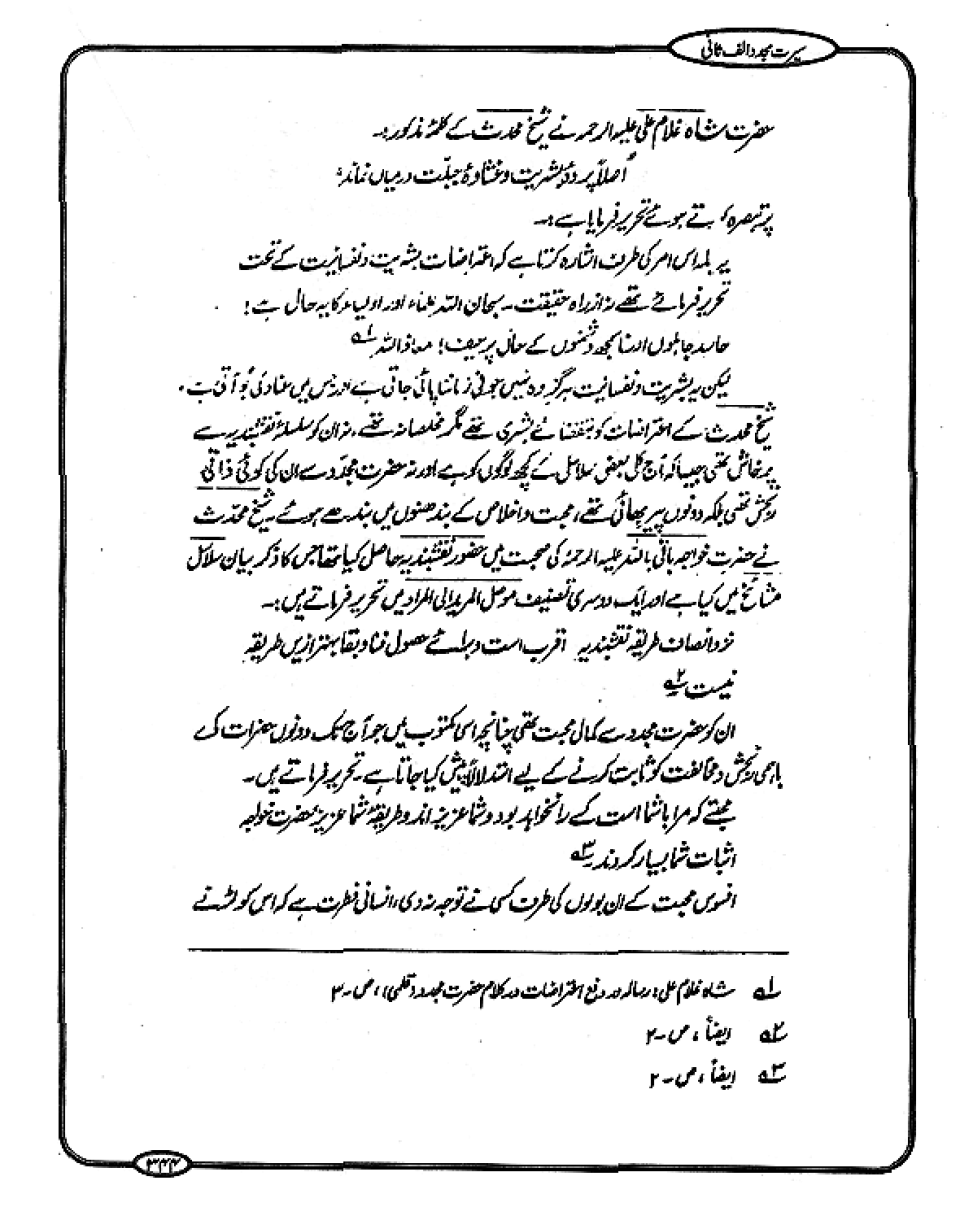 سیرت مجدد الف ثانی
حضرت شاہ غلام علی علیہ الرحمہ نے شیخ محدث کے کلمۂ مذکور:۔
اُصلاً پردۂ بشریت و غشاوۂ جبلّت درمیاں نماند"
پر تبصرہ کرتے ہوئے تحریر فرمایا ہے:۔
یہ جملہ اس امر کی طرف اشارہ کرتا ہے کہ اعتراضات بشریت و نفسانیت کے تحت
تحریر فرمائے تھے نہ از راہ حقیقت۔ سبحان اللہ علماء اور اولیاء کا یہ حال ہے!
حاسد جاہلوں اور ناسمجھ دشمنوں کے حال پر حیف! معاذ اللہ ۱؎
لیکن یہ بشریت و نفسانیت ہرگز وہ نہیں جو فی زماننا پائی جاتی ہے اور جس میں عناد کی بُو آتی ہے۔
شیخ محدث کے اعتراضات گو بمقتضائے بشری تھے مگر مخلصانہ تھے، نہ ان کو سلسلۂ نقشبندیہ سے
پرخاش تھی جیسا کہ آج کل بعض سلاسل کے کچھ لوگوں کو ہے اور نہ حضرت مجدّد سے ان کی کوئی ذاتی
رنجش تھی بلکہ دونوں پیر بھائی تھے، محبت و اخلاص کے بندھنوں میں بندھے ہوئے۔ شیخ محدّث
نے حضرت خواجہ باقی باللہ علیہ الرحمۃ کی صحبت میں حضور نقشبندیہ حاصل کیا تھا جس کا ذکر بیان سلاسل
مشائخ میں کیا ہے اور ایک دوسری تصنیف موصل المرید الی المراد میں تحریر فرماتے ہیں:۔
نزد انصاف طریقہ نقشبندیہ اقرب است و برائے حصول فنا و بقا بہتر ازیں طریقہ
نیست ۲؎
ان کو حضرت مجدد سے کمال محبت تھی چنانچہ اسی مکتوب میں جو آج تک دونوں حضرات کی
باہمی رنجش و مخالفت کو ثابت کرنے کے لیے استدلالاً پیش کیا جاتا ہے۔ تحریر فرماتے ہیں۔
محبتے کہ مرا باشما است کسے را نخواہد بود و شما عزیز اند و طریقۂ شما عزیز، حضرت خواجہ
اثبات شما بسیار کردند ۳؎
افسوس محبت کے ان بولوں کی طرف کسی نے توجہ نہ دی، انسانی فطرت ہے کہ اس کو لڑنے
۱؎ شاہ غلام علی: رسالہ در دفع اعتراضات در کلام حضرت مجدد (قلمی)، ص۔۳
۲؎ ایضاً، ص۔۲
۳؎ ایضاً، ص۔۲
۳۴۴